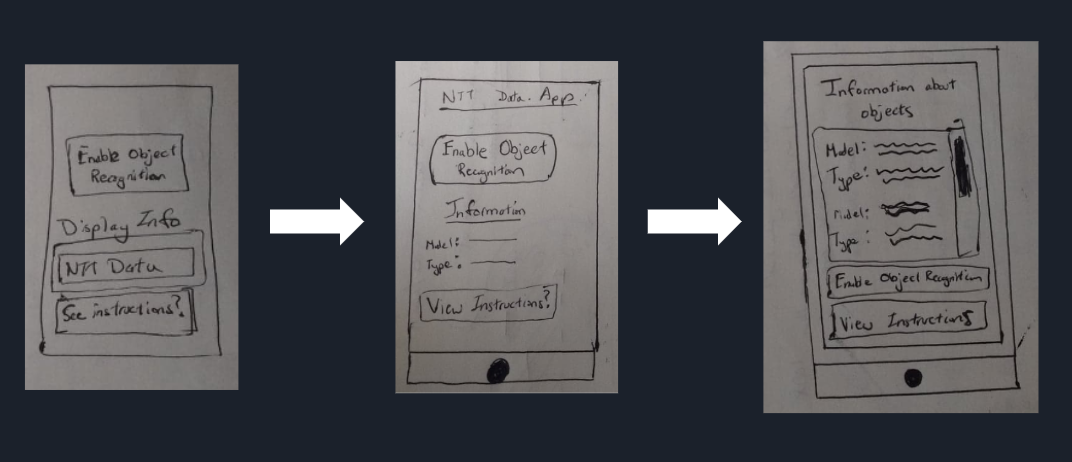 Enable Object
Recognition
Display Info
NTT Data
See instructions?
NTT Data App
Enable Object
Recognition
Information
Model:
Type:
View Instructions?
Information about
objects
Model:
Type:
Model:
Type:
Enable Object Recognition
View Instructions